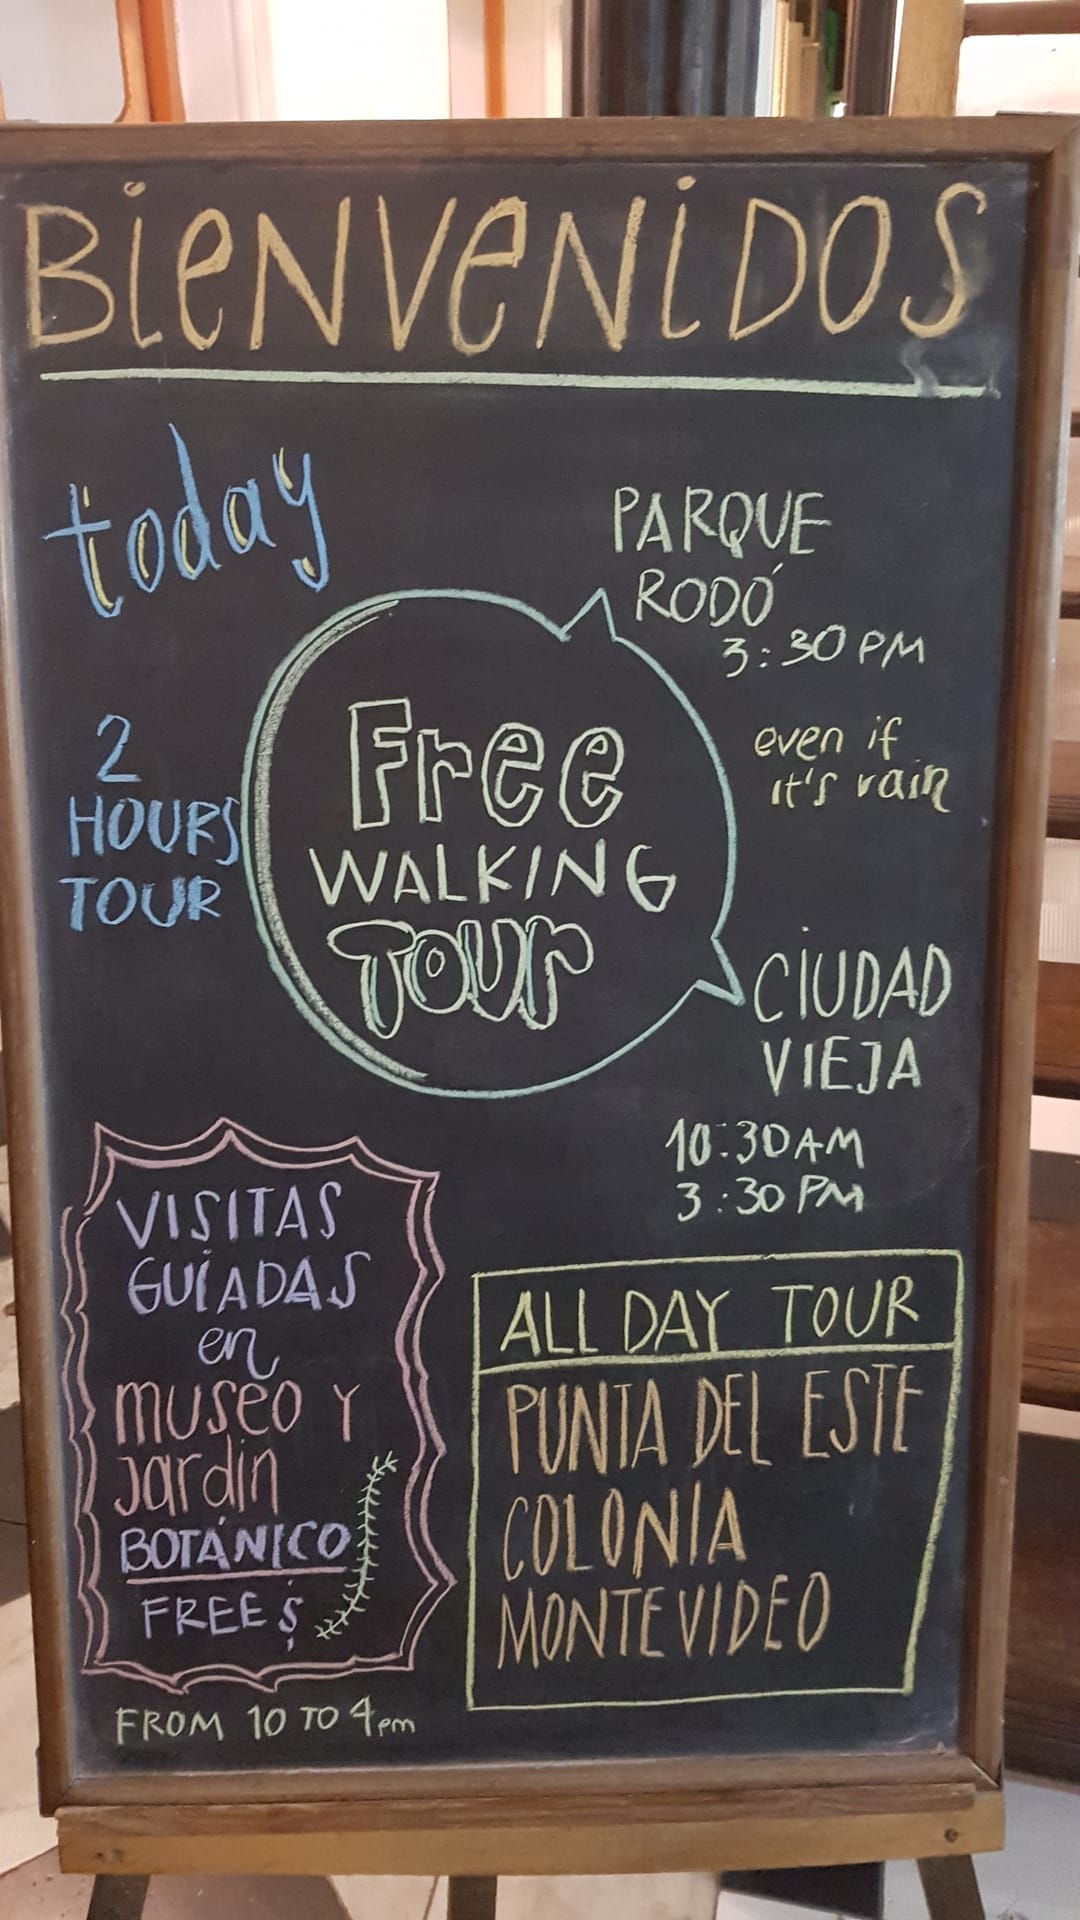 BieNVeNiDOS
today
PARQUE
RODÓ
3:30 PM
even if
it's rain
2
HOURS
TOUR
Free
WALKING
Tour
CiUDAD
VIEJA
10:30AM
3:30 PM
VISITAS
GUÍADAS
en
museo Y
Jardin
BOTÁNICO
FREE $
FROM 10 TO 4pm
ALL DAY TOUR
PUNTA DEL ESTE
COLONIA
MONTEVIDEO